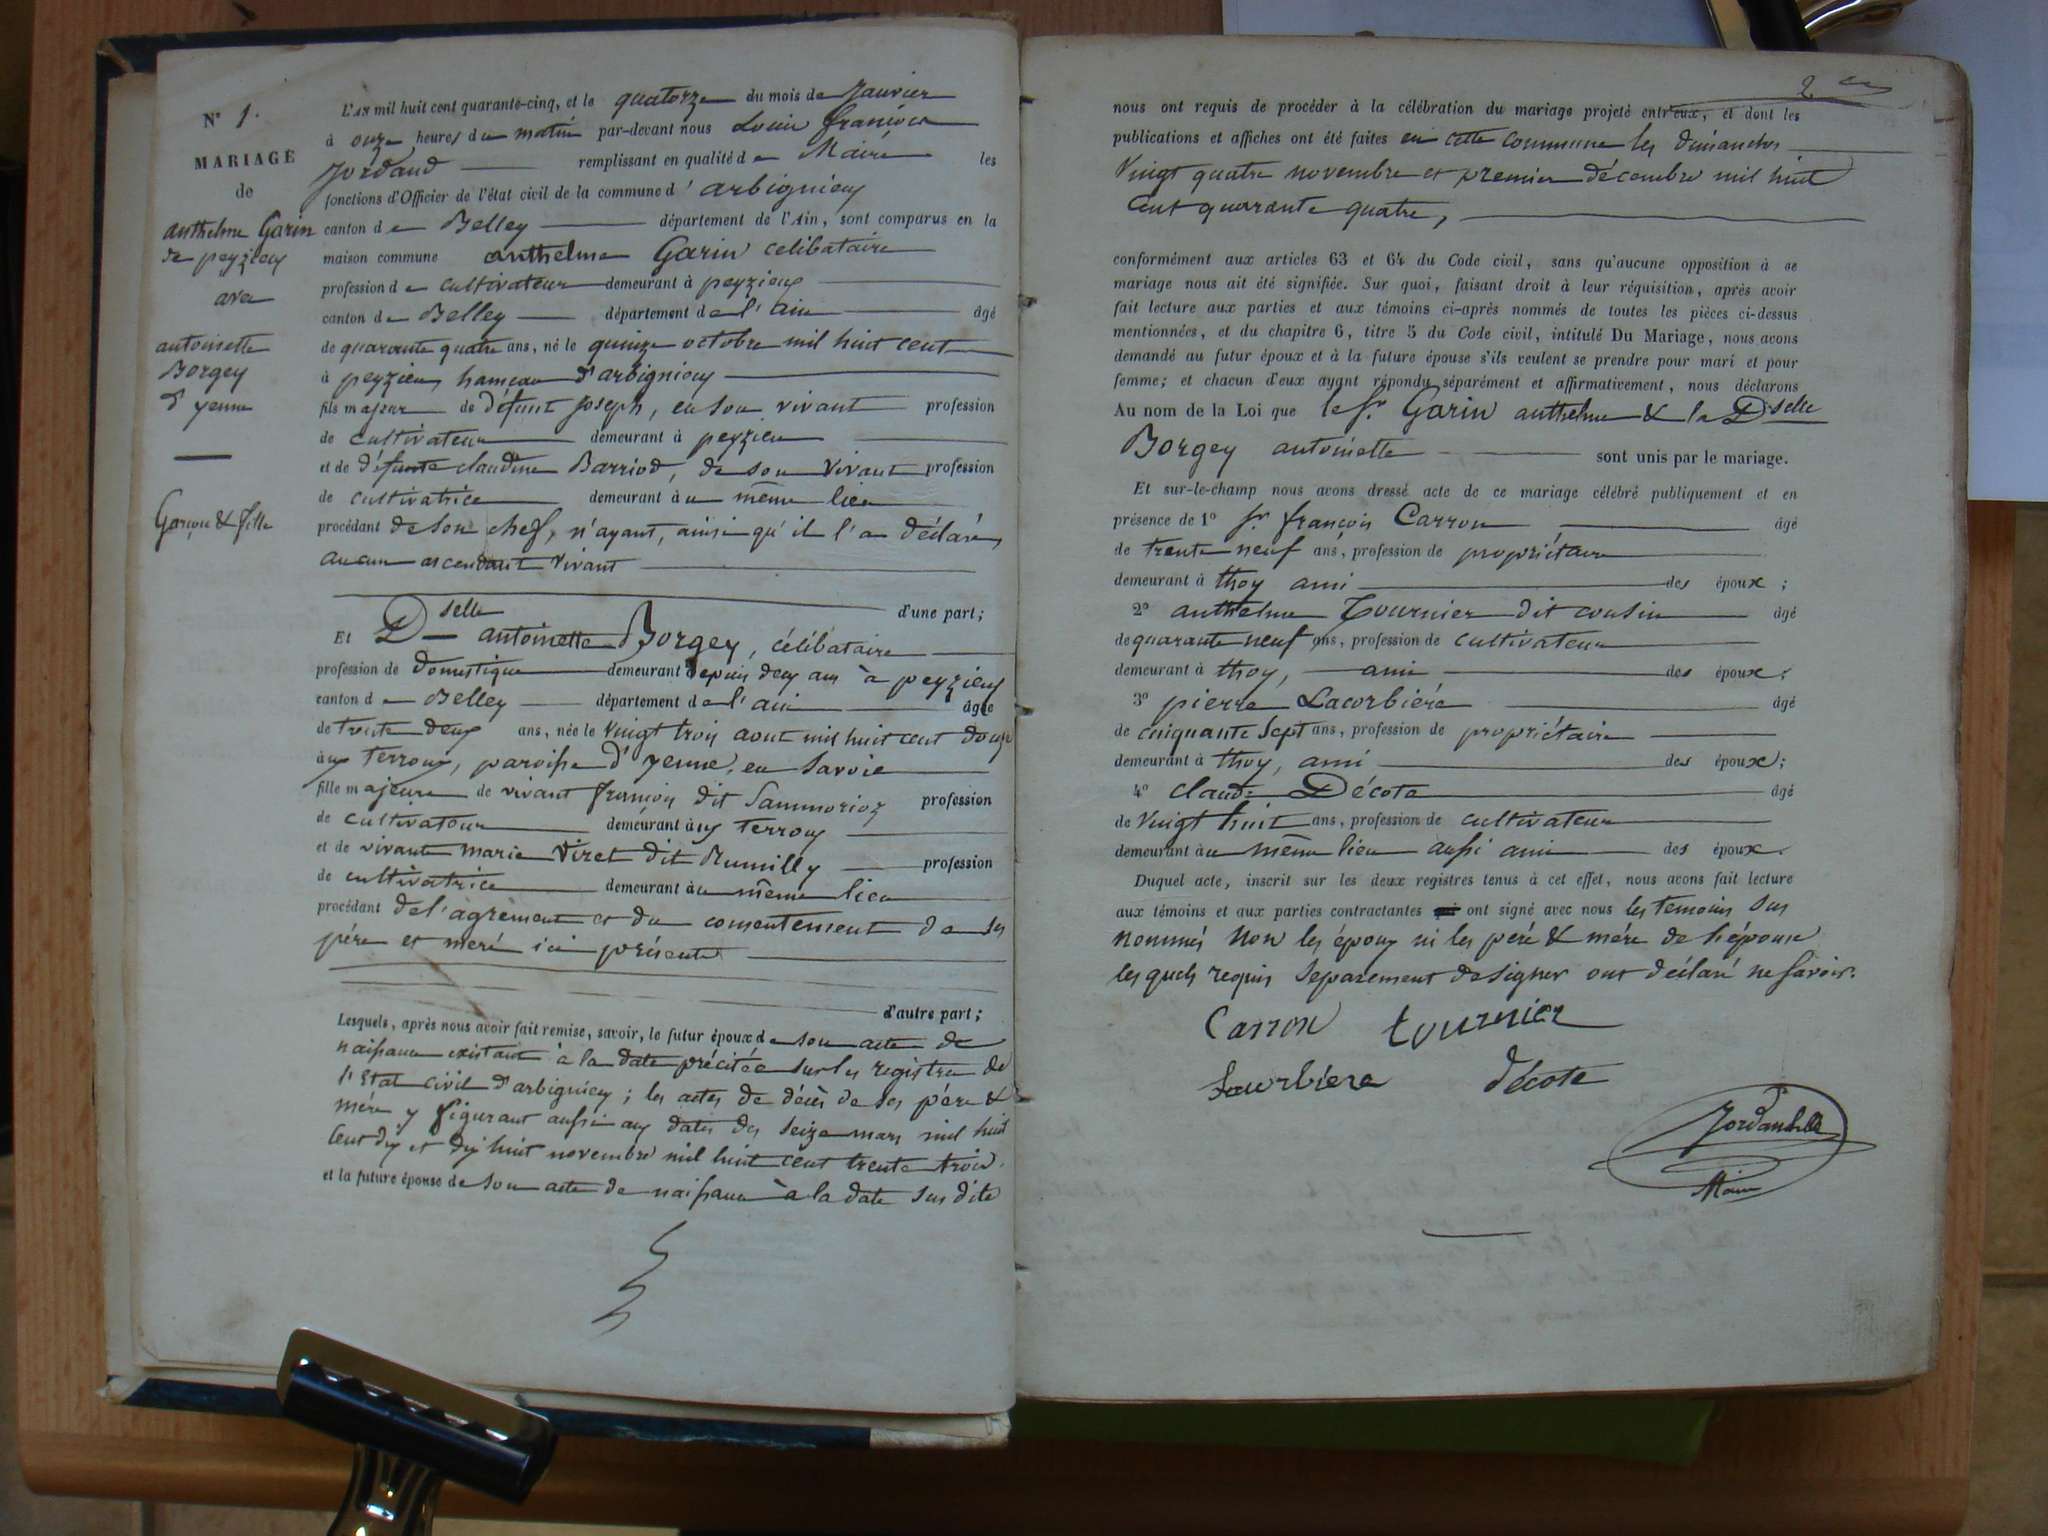 N° 1.
MARIAGE
de
anthelme Garin
de peyzieu
avec
antoinette
Borgey
d'yenne
Garçon & fille
L'AN mil huit cent quarante-cinq, et le quatorze du mois de Janvier
à onze heures du matin par-devant nous Louis françois
Jordand remplissant en qualité de Maire les
fonctions d'Officier de l'état civil de la commune d'arbignieu
canton de Belley département de l'Ain, sont comparus en la
maison commune anthelme Garin celibataire
profession de cultivateur demeurant à peyzieu
canton de Belley département de l'ain âgé
de quarante quatre ans, né le quinze octobre mil huit cent
à peyzieu, hameau d'arbignieu
fils majeur de défunt Joseph, en son vivant profession
de cultivateur demeurant à peyzieu
et de défunte claudine Barriod, de son vivant profession
de cultivatrice demeurant au même lieu
procédant de son chef, n'ayant, ainsi qu'il l'a déclaré,
aucun ascendant vivant
d'une part;
Et Dselle antoinette Borgey, célibataire
profession de domestique demeurant depuis deux ans à peyzieu
canton de Belley département de l'ain âgée
de trente deux ans, née le vingt trois aout mil huit cent douze
aux terroux, paroisse d'yenne, en Savoie
fille majeure de vivant françois dit Sammorioz profession
de cultivateur demeurant aux terroux
et de vivante marie Viret dit Rumilly profession
de cultivatrice demeurant au même lieu
procédant de l'agrément et du consentement de ses
père et meré ici présents
d'autre part;
Lesquels, après nous avoir fait remise, savoir, le futur époux de son acte de
naissance existant à la date précitée sur les registres de
l'Etat civil d'arbignieu; les actes de décès de ses père &
mère y figurant aussi aux dates des seize mars mil huit
cent dix et dix huit novembre mil huit cent trente trois.
et la future épouse de son acte de naissance à la date sus dite
2
nous ont requis de procéder à la célébration du mariage projeté entr'eux, et dont les
publications et affiches ont été faites en cette commune les dimanches
Vingt quatre novembre et premier décembre mil huit
cent quarante quatre,
conformément aux articles 63 et 64 du Code civil, sans qu'aucune opposition à ce
mariage nous ait été signifiée. Sur quoi, faisant droit à leur réquisition, après avoir
fait lecture aux parties et aux témoins ci-après nommés de toutes les pièces ci-dessus
mentionnées, et du chapitre 6, titre 5 du Code civil, intitulé Du Mariage, nous avons
demandé au futur époux et à la future épouse s'ils veulent se prendre pour mari et pour
femme; et chacun d'eux ayant répondu séparément et affirmativement, nous déclarons
Au nom de la Loi que le Sr Garin anthelme & la Dselle
Borgey antoinette sont unis par le mariage.
Et sur-le-champ nous avons dressé acte de ce mariage célébré publiquement et en
présence de 1° Sr françois Carron âgé
de trente neuf ans, profession de propriétaire
demeurant à thoy ami des époux;
2° anthelme Tournier dit cousin âgé
de quarante neuf ans, profession de cultivateur
demeurant à thoy, ami des époux;
3° pierre Lacorbiére âgé
de cinquante sept ans, profession de propriétaire
demeurant à thoy, ami des époux;
4° claude Décote âgé
de vingt huit ans, profession de cultivateur
demeurant au même lieu aussi ami des époux.
Duquel acte, inscrit sur les deux registres tenus à cet effet, nous avons fait lecture
aux témoins et aux parties contractantes ont signé avec nous les temoins sus
nommés non les époux ni les peré & mére de l'épouse
lesquels requis separement de signer ont déclaré ne savoir.
Carron tournier
décote
Maire